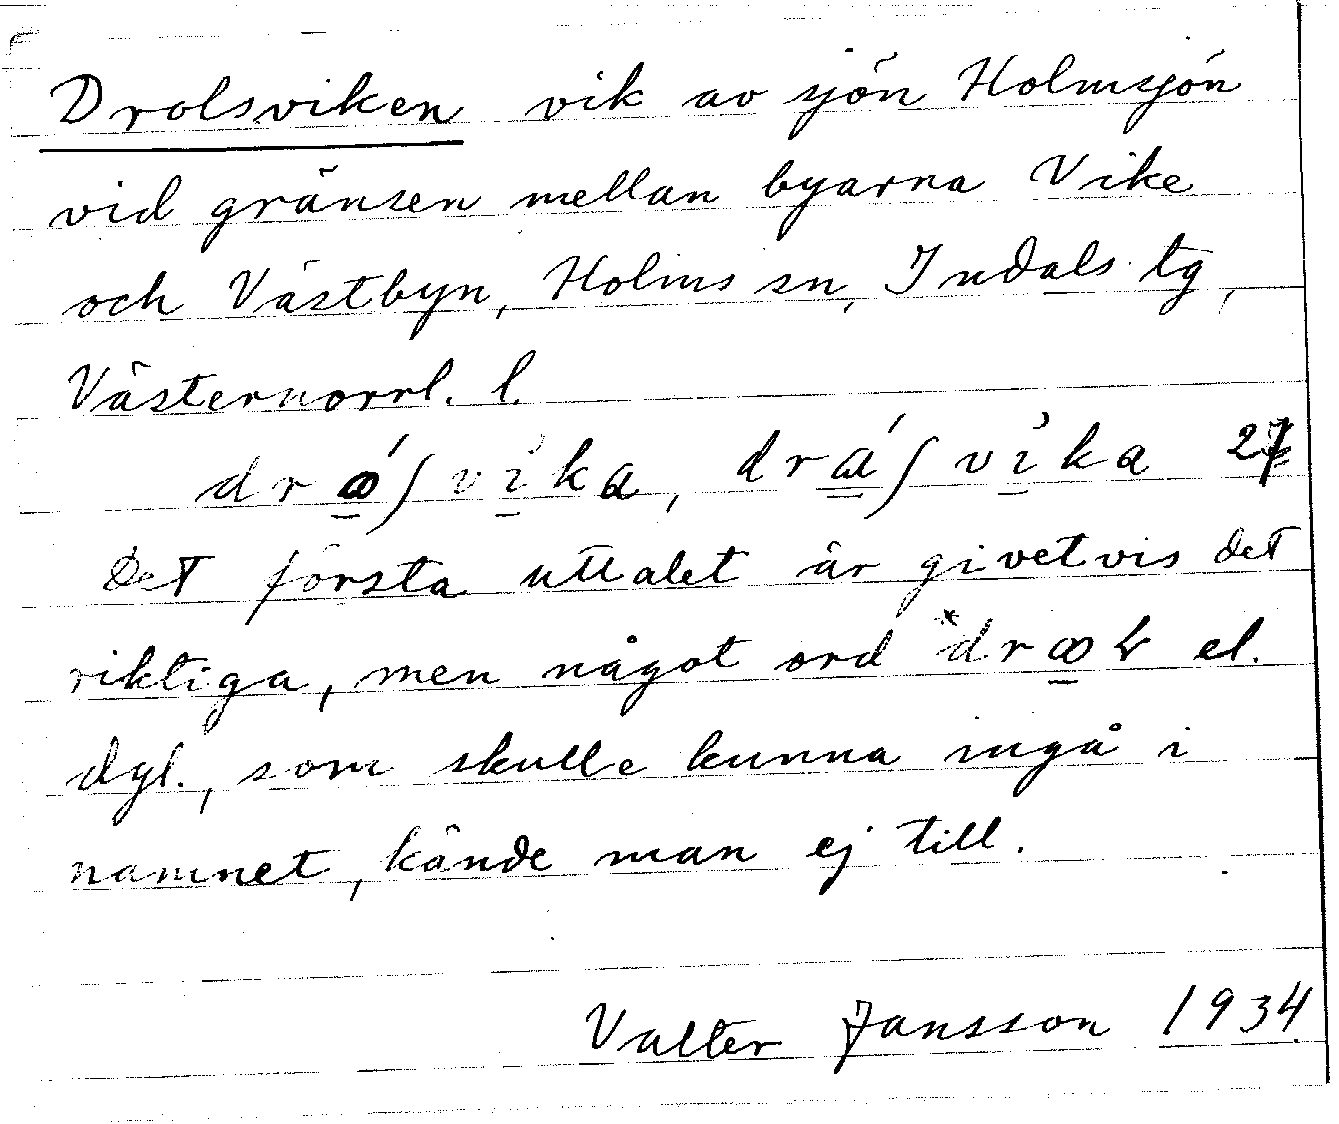 Drolsviken vik av sjön Holmsjön
vid gränsen mellan byarna Vike
och Västbyn, Holms sn, Indals tg,
Västernorrl. l.
drꝏ́ʃvìka, drá̱ʃvìka 27
Det första uttalet är givetvis det
riktiga, men något ord *drꝏɫ el.
dyl., som skulle kunna ingå i
namnet, kände man ej till.
Valter Jansson 1934